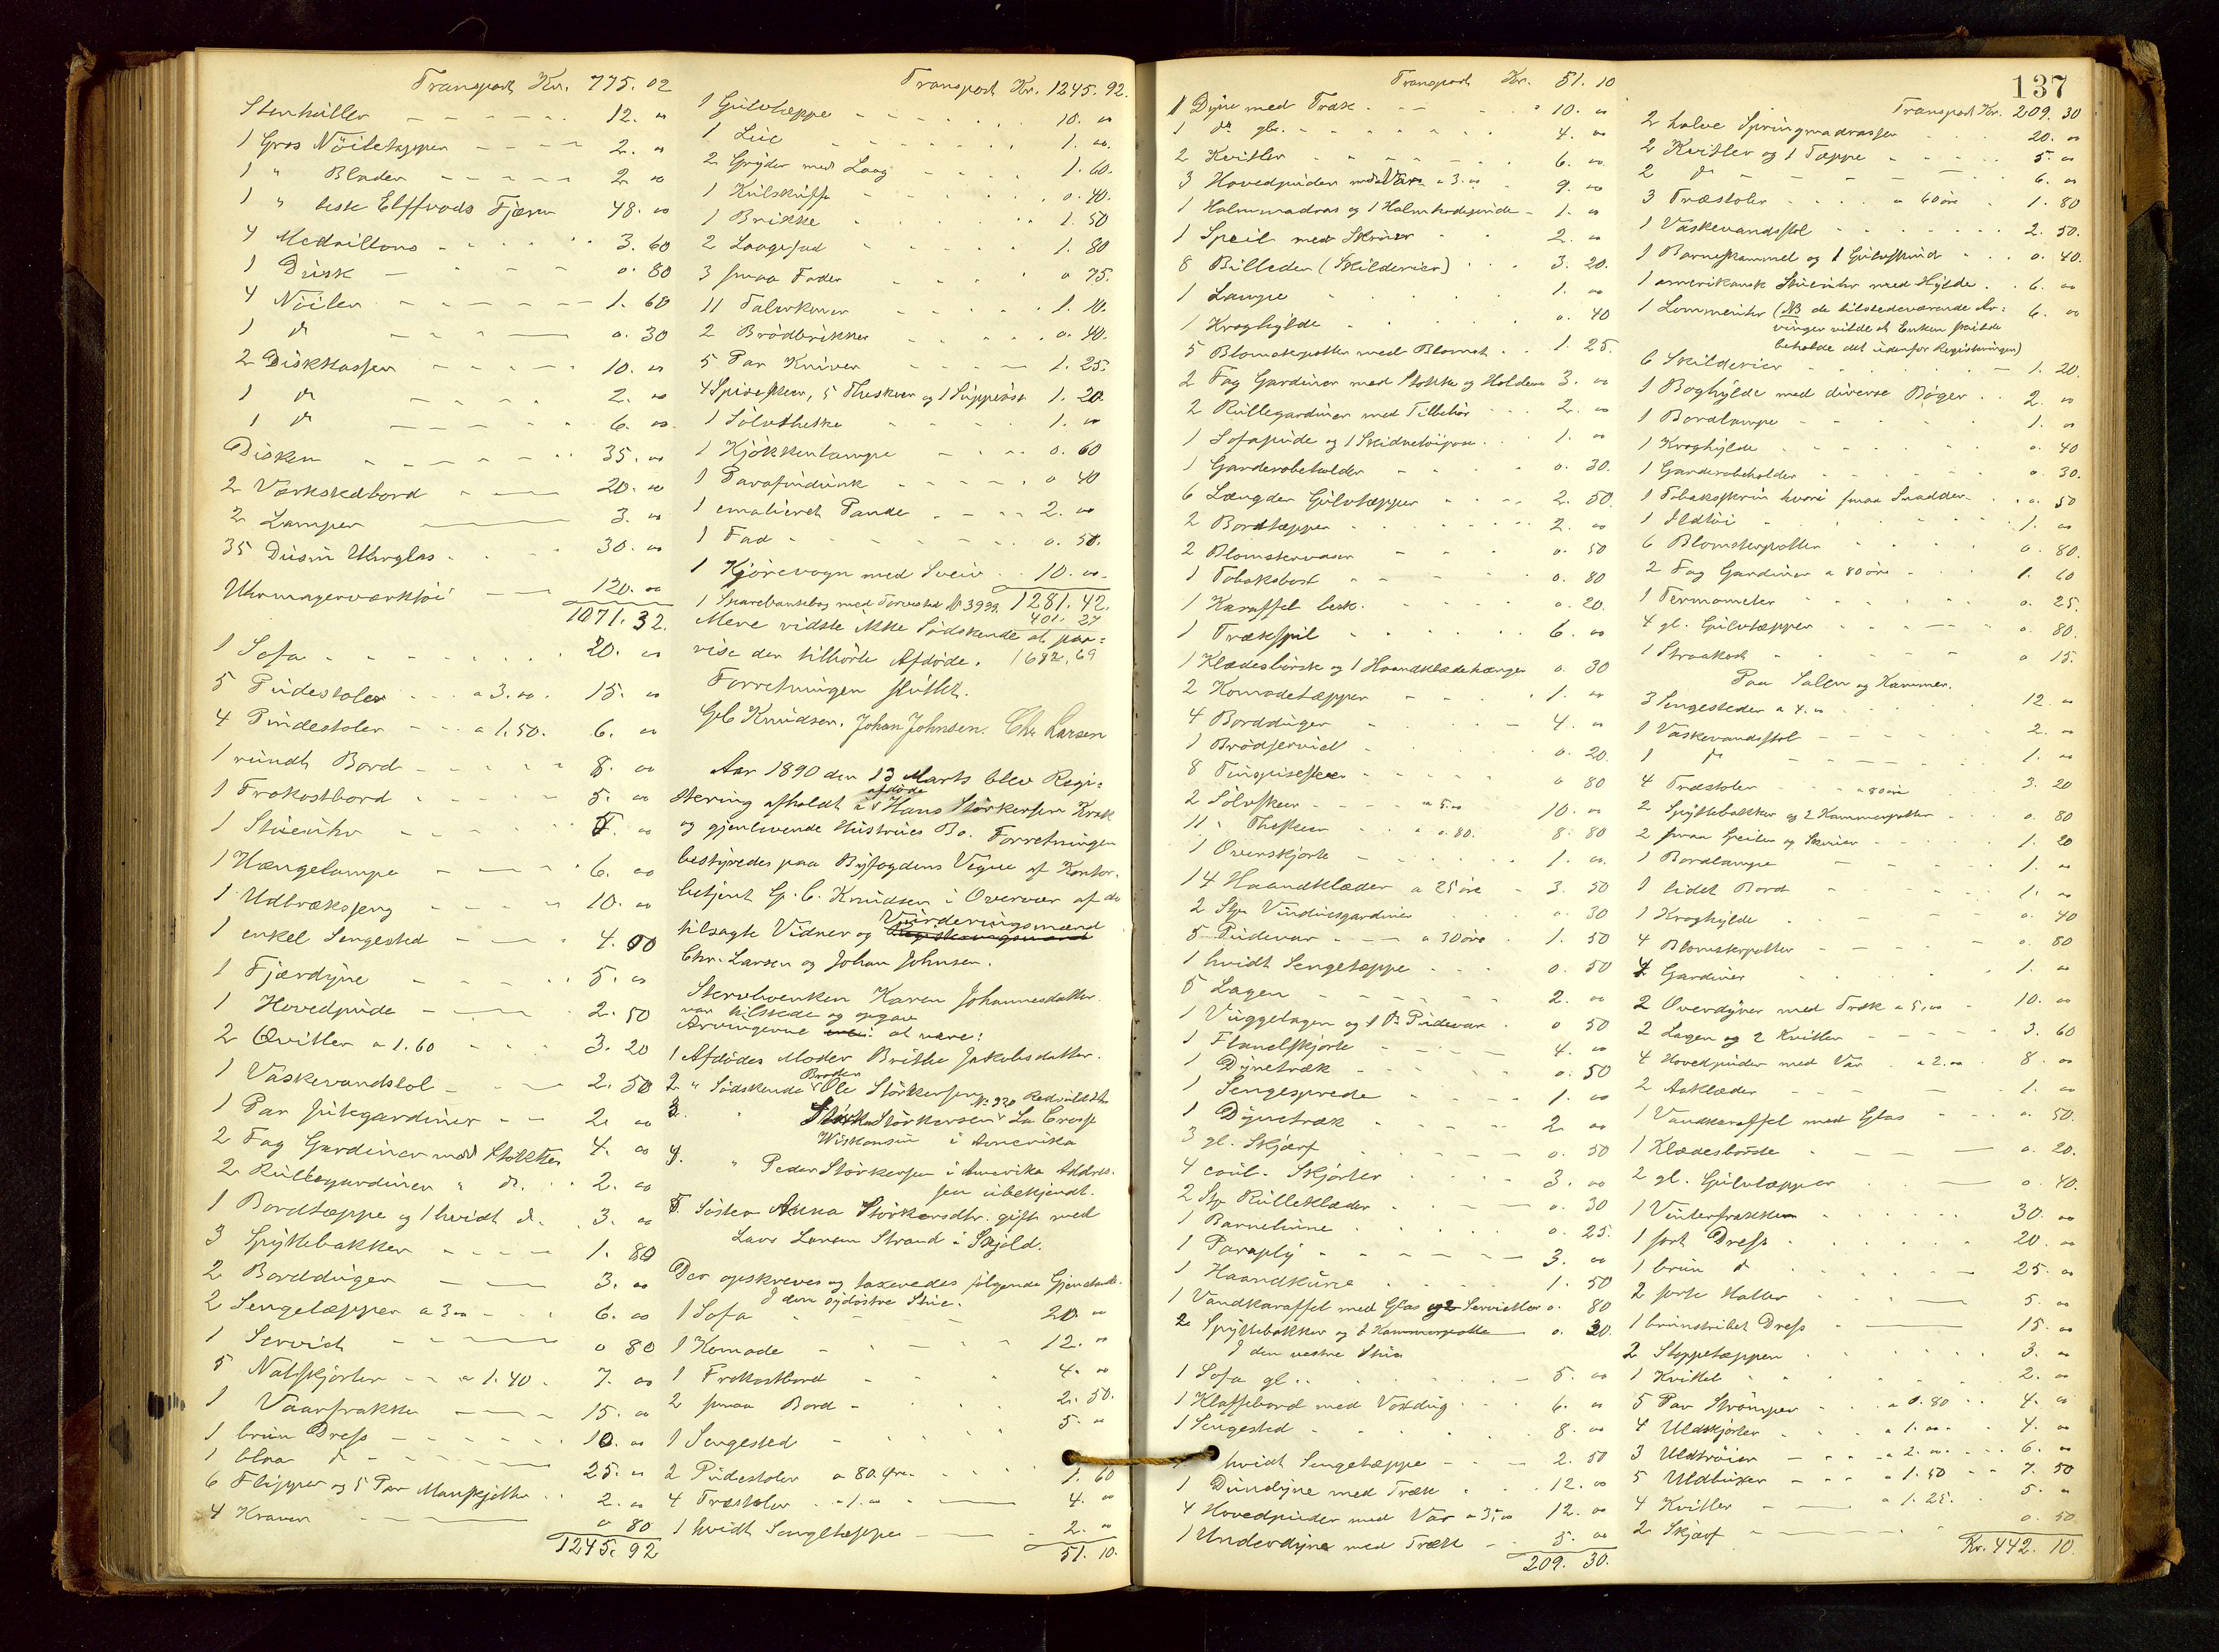 Transport Kr. 775. 02
Stenhuller 12. 00
1 Gros Nöiletapper 2. 00
1 " Blader 2. 00
1 " beste Fjærer 48. 00
4 3. 60
1 Dusk 0. 80
4 Nöiler 1. 60
1 do 0. 30
2 Diskkasser 10. 00
1 do 2. 00
1 do 6. 00
Disken 35. 00
2 Værkstedbord 20. 00
2 Lamper 3. 00
35 Dusin Uhrglas 30. 00
Uhrmagerværktöi 120. 00
1071. 32.
1 Sofa 20. 00
5 Pudestoler a 3.00. 15. 00
4 Pindestoler a 1.50. 6. 00
1 rundt Bord 8. 00
1 Frokostbord 5. 00
1 Stueuhr 5. 00
1 Hængelampe 6. 00
1 Udtræksseng 10. 00
1 enkel Sengested 4. 00
1 Fjærdyne 5. 00
1 Hovedpude 2. 50
2 Qvitler a 1.60 3. 20
1 Vaskevandstol 2. 50
1 Par Jutegardiner 2. 00
2 Fag Gardiner med Stokker 4. 00
2 Rullegardiner " do. 2. 00
1 Bordtæppe og 1 hvidt do. 3. 00
3 Spyttebakker 1. 80
2 Bordduger 3. 00
2 Sengetæpper a 3.00 6. 00
1 Servich 0 80
5 Natskjorter a 1.40 7. 00
1 Vaarfrakke 15. 00
1 brun Dress 10. 00
1 blaa do 25. 00
6 Flipper og 5 Par Manskjetter 2. 00
4 Kraver 0 80
1245. 92
Transport Kr. 1245. 92.
1 Gulvtæppe 10. 00
1 Lue 1. 00.
2 Gryder med Laag 1. 60.
1 Kulskuffe 0. 40.
1 Brikke 1. 50
2 Laagefad 1. 80
3 smaa Fader 0 75.
11 Talerkener 1. 10.
2 Brödbrikker 0. 40.
5 Par Kniver 1. 25.
4 Spiseskeer, 5 Theskeer og 1 Suppeöse 1. 20.
1 Sölvtheske 1. 00
1 Kjökkenlampe 0. 60
1 Parafindunk 0 40
1 emalieret Pande 2. 00
1 Fad 0. 50.
1 Kjörevogn med Sveiv 10. 00
1281. 42.
1 Sparebanksbog med Torvestad No 3999. 401. 27
Mere vidste ikke Södskende at paa=
vise den tilhörte Afdöde. 1682,69
Forretningen sluttet.
GC Knudsen. Johan Johnsen. Chr Larsen
Aar 1890 den 13 Marts blev Regi=
stering afholdt i afdöde Hans Störkersen Krak
og gjenlevende Hustrues Bo. Forretningen
bestyredes paa Byfogdens Vegne af Kontor=
betjent G. C. Knudsen i Overvær af de
tilsagte Vidner og Vurderingsmænd Registeringsmænd
Chr. Larsen og Johan Johnsen.
Stervboenken Karen Johannesdatter
var tilstede og opgav
Arvingerne at være:
1 Afdödes Moder Brithe Jakobsdatter.
2 " Södskende Broder Ole Störkersen
3. " Störk Störkersen No 930 La Crosse
Wiskonsin i Amerika
4. " Peder Störkersen i Amerika Addres=
sen ubekjendt.
5. Söster Anna Störkersdtr. gift med
Lars Larsen Strand i Skjold.
Der opskreves og taxeredes fölgende Gjenstande.
I den sydöstre Stue.
1 Sofa 20. 00
1 Komode 12. 00
1 Frokostbord 4. 00
2 smaa Bord 2. 50.
1 Sengested 5. 00
2 Pudestoler a 80 Öre 1. 60
4 Træstoler a 1.00 4. 00
1 hvidt Sengetæppe 2. 00
51. 10.
137
Transport Kr. 51. 10
1 Dyne med Træk 10. 00
1 do gl. 4. 00
2 Kvitler 6. 00
3 Hovedpuder med Var a 3.00 9. 00
1 Halmmadras og 1 Halmhodepude 1. 00
1 Speil med Skruer 2. 00
8 Billeder (Skilderier) 3. 20.
1 Lampe 1. 00
1 Kroghylde 0. 40
5 Blomsterpotter med Blomst 1. 25.
2 Fag Gardiner med Stokke og Holdere 3. 00
2 Rullegardiner med Tilbehör 2. 00
1 Sofapude og 1 Skidnetöipose 1. 00
1 Garderobeholder 0. 30.
6 Længder Gulvtæpper 2. 50.
2 Bordtæpper 2. 00
2 Blomstervaser 0. 50
1 Tobaksbort 0. 80
1 Karaffel besk. 0. 20.
1 Trækspil 6. 00
1 Klædesbörste og 1 Haandklædehænger 0. 30
2 Komodetæpper 1. 00
4 Bordduger 4. 00
1 Brödserviet 0. 20.
8 Tinspiseskeer 0 80
2 Sölvskeer a 5.00 10. 00
11 " Theskeer a 0.80. 8. 80
1 Overskjorte 1. 00.
14 Haandklæder a 25 öre 3. 50
2 Stkr Vinduesgardiner 0. 30
5 Pudevar a 30 öre 1. 50
1 hvidt Sengetæppe 0. 50
5 Lagen 2. 00
1 Vuggelagen og 1 do Pudevar 0 50
1 Flanelskjorte 4. 00
1 Dynetræk 0. 50
1 Sengesprede 1. 00
1 Dynetræk 2 00
3 gl. Skjærf 0. 50
4 coul. Skjorter 3. 00
2 Stkr Rulleklæder 0. 30
1 Barnehue 0. 25.
1 Paraply 3. 00
1 Haandkurv 1. 50
1 Vandkaraffel med Glas og 2 Servietter 0. 80
2 Spyttebakker og 1 Kammerpotte 0. 30.
I den vestre Stue
1 Sofa gl. 5. 00
1 Klaffebord med Voxdug 6. 00
1 Sengested 8. 00
hvidt Sengetæppe 2. 50
1 Dundyne med Træk 12. 00
4 Hovedpuder med Var a 3,00 12. 00
1 Underdyne med Træk 5. 00
209. 30.
Transport Kr. 209. 30
2 halve Springmadrasser 20. 00
2 Kvitler og 1 Tæppe 5. 00
2 do 6. 00
3 Træstoler a 60 öre 1. 80
1 Vaskevandsstol 2. 50.
1 Barneskammel og 1 Gulvskind 0. 40.
1 amerikansk Stueuhr med Hylde 6. 00
1 Lommeuhr (NB de tilstedeværende Ar= 6. 00
vinger vilde at Enken skulde
beholde det udenfor Registeringen)
6 Skilderier 1. 20.
1 Boghylde med diverse Böger 2. 00
1 Bordlampe 1. 00
1 Kroghylde 0. 40
1 Garderobeholder 0. 30.
1 Tobaksskrin hvori smaa Snadder 0. 50
1 Ildtöi 1. 00
6 Blomsterpotter 0. 80.
2 Fag Gardiner a 80 öre 1. 60
1 Termometer 0. 25.
4 gl. Gulvtæpper 0. 80.
1 0 15.
Paa Salen og Kammer.
3 Sengesteder a 4.00 12 00
1 Vaskevandsstol 2. 00
1 do 1. 00
4 Træstoler a 80 öre 3. 20
2 Spyttebakker og 2 Kammerpotter 0. 80
2 smaa Speiler og Skruer 1. 20
1 Bordlampe 1. 00
1 lidet Bord 1. 00
1 Kroghylde 0. 40
4 Blomsterpotter 0. 80
4 Gardiner 1. 00
2 Overdyner med Træk a 5,00 10. 00
2 Lagen og 2 Kvitler 3. 60
4 Hovedpuder med Var a 2.00 8. 00
2 Aaklæder 1. 00
1 Vandkaraffel med Glas 0. 50.
1 Klædesbörste 0. 20.
2 gl. Gulvtæpper 0. 40.
1 Vinterfrakke 30. 00
1 sort Dress 20. 00
1 brun do 25. 00
2 sorte Hatter 5. 00
1 brunstribet Dress 15. 00
2 Stoppetæpper 3. 00
1 Kvittel 2. 00
5 Par Strömper a 0.80 4. 00
4 Uldskjorter a 1.00 4. 00
3 Uldtröier a 2.00 6. 00
5 Uldbuxer a 1.50 7. 50
4 Kvitler a 1.25. 5. 00
2 Skjærf 0. 50.
Kr. 442. 10.